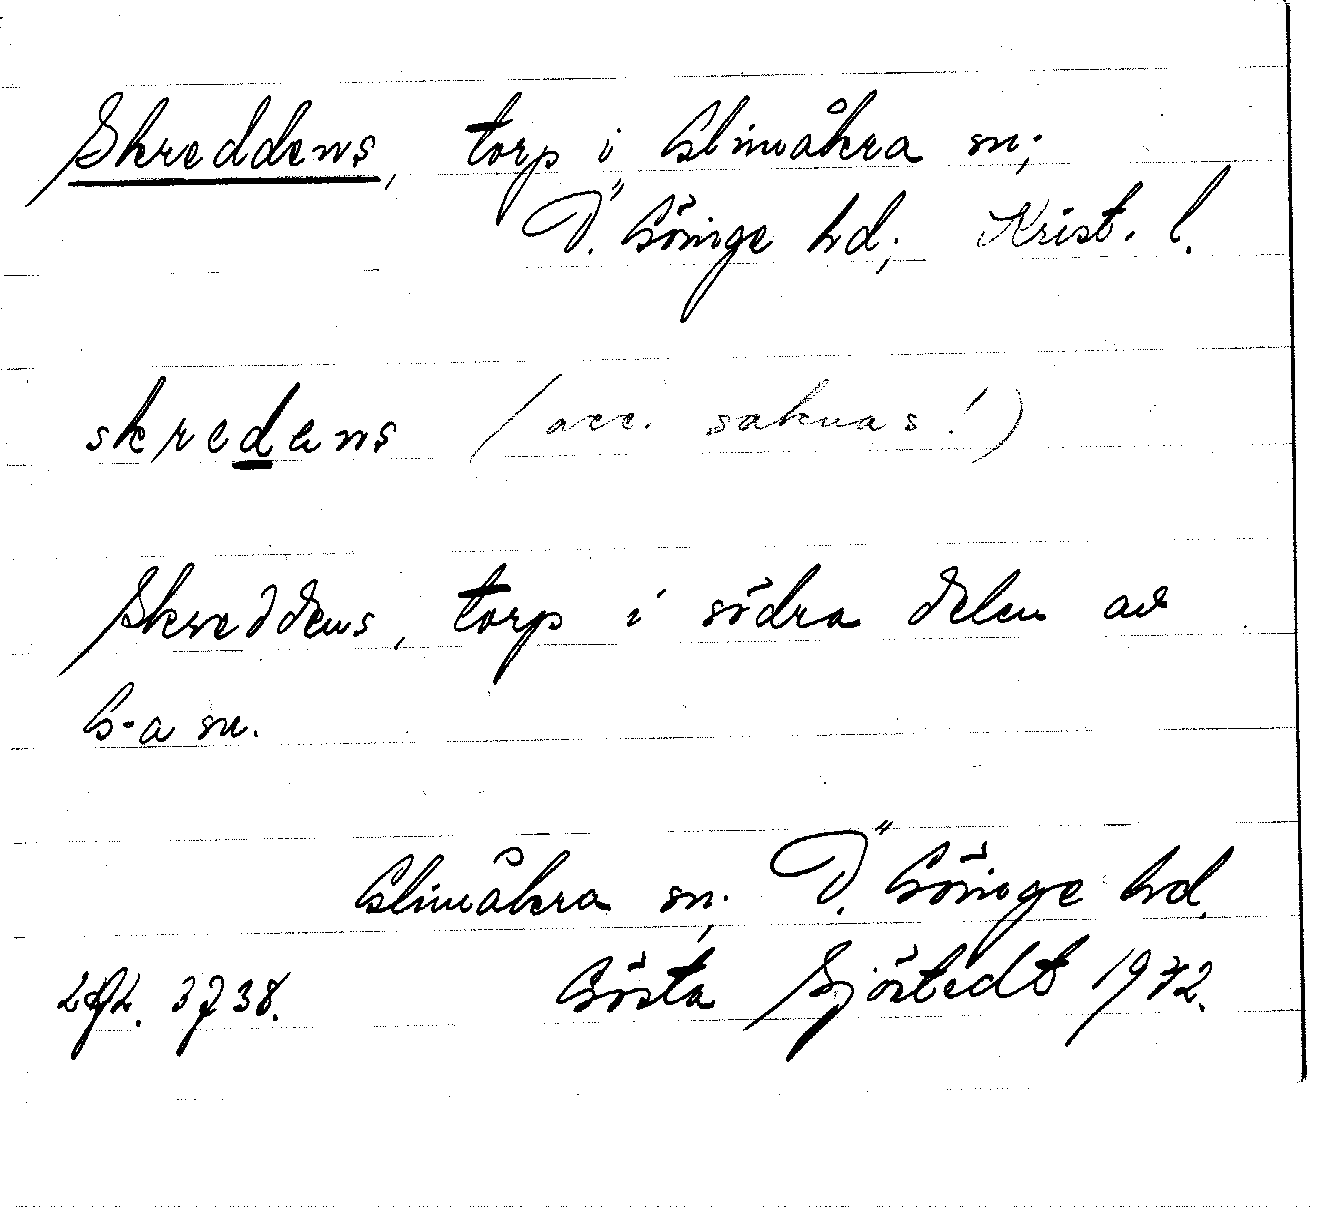 Skreddens, torp i Glimåkra sn;
Ö. Göinge hd; Krist. l.
skredens (acc. saknas!)
Skreddens, torp i södra delen av
G-a sn.
Glimåkra sn; Ö. Göinge hd.
3738. Gösta Sjöstedt 1972.